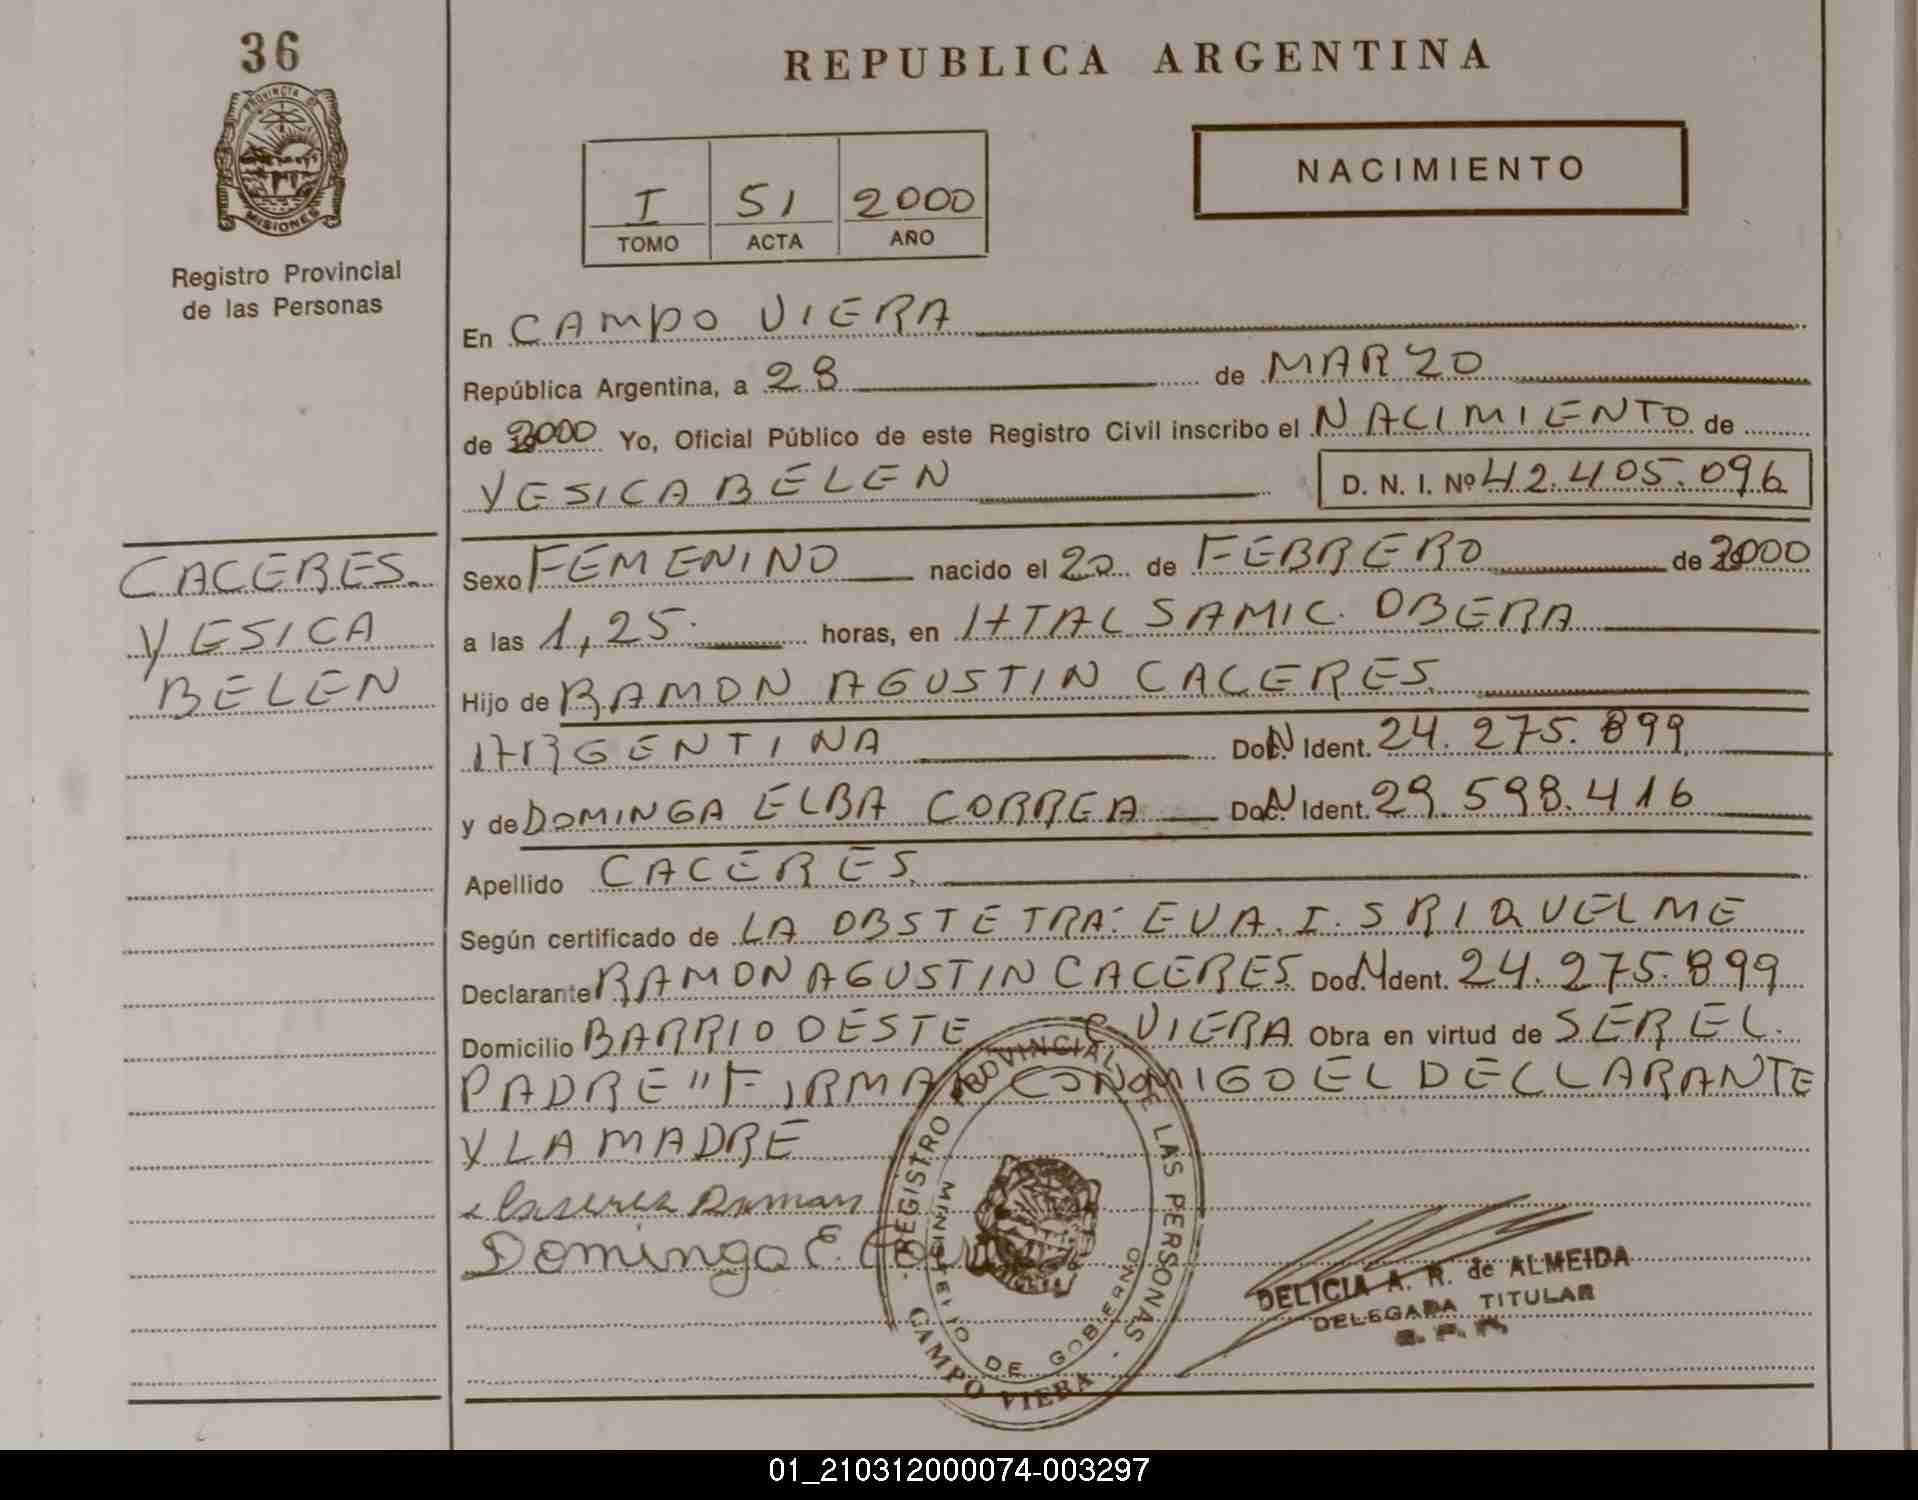 36
REPUBLICA ARGENTINA
PROVINCIA DE
MISIONES
Registro Provincial
de las Personas
NACIMIENTO
I 51 2000
TOMO ACTA AÑO
En CAMPO VIERA
República Argentina, a 28 de MARZO
de 2000 Yo, Oficial Público de este Registro Civil inscribo el NACIMIENTO de
YESICA BELEN D. N. I. Nº 42.405.096
CACERES
YESICA
BELEN
Sexo FEMENINO nacido el 20 de FEBRERO de 2000
a las 1,25 horas, en HTAL SAMIC. OBERA
Hijo de RAMON AGUSTIN CACERES
ARGENTINA Doc. N Ident. 24.275.899
y de DOMINGA ELBA CORREA Doc. N Ident. 29.598.416
Apellido CACERES
Según certificado de LA OBSTETRA: EVA. I. S RIQUELME
Declarante RAMON AGUSTIN CACERES Doc. N Ident. 24.275.899
Domicilio BARRIO OESTE C VIERA Obra en virtud de SER EL
PADRE "FIRMAN CONMIGO EL DECLARANTE
Y LA MADRE
Caseres Raman
Dominga E.
REGISTRO PROVINCIAL DE LAS PERSONAS
MINISTERIO DE GOBIERNO
CAMPO VIERA
DELICIA A. R. de ALMEIDA
DELEGADA TITULAR
01_210312000074-003297